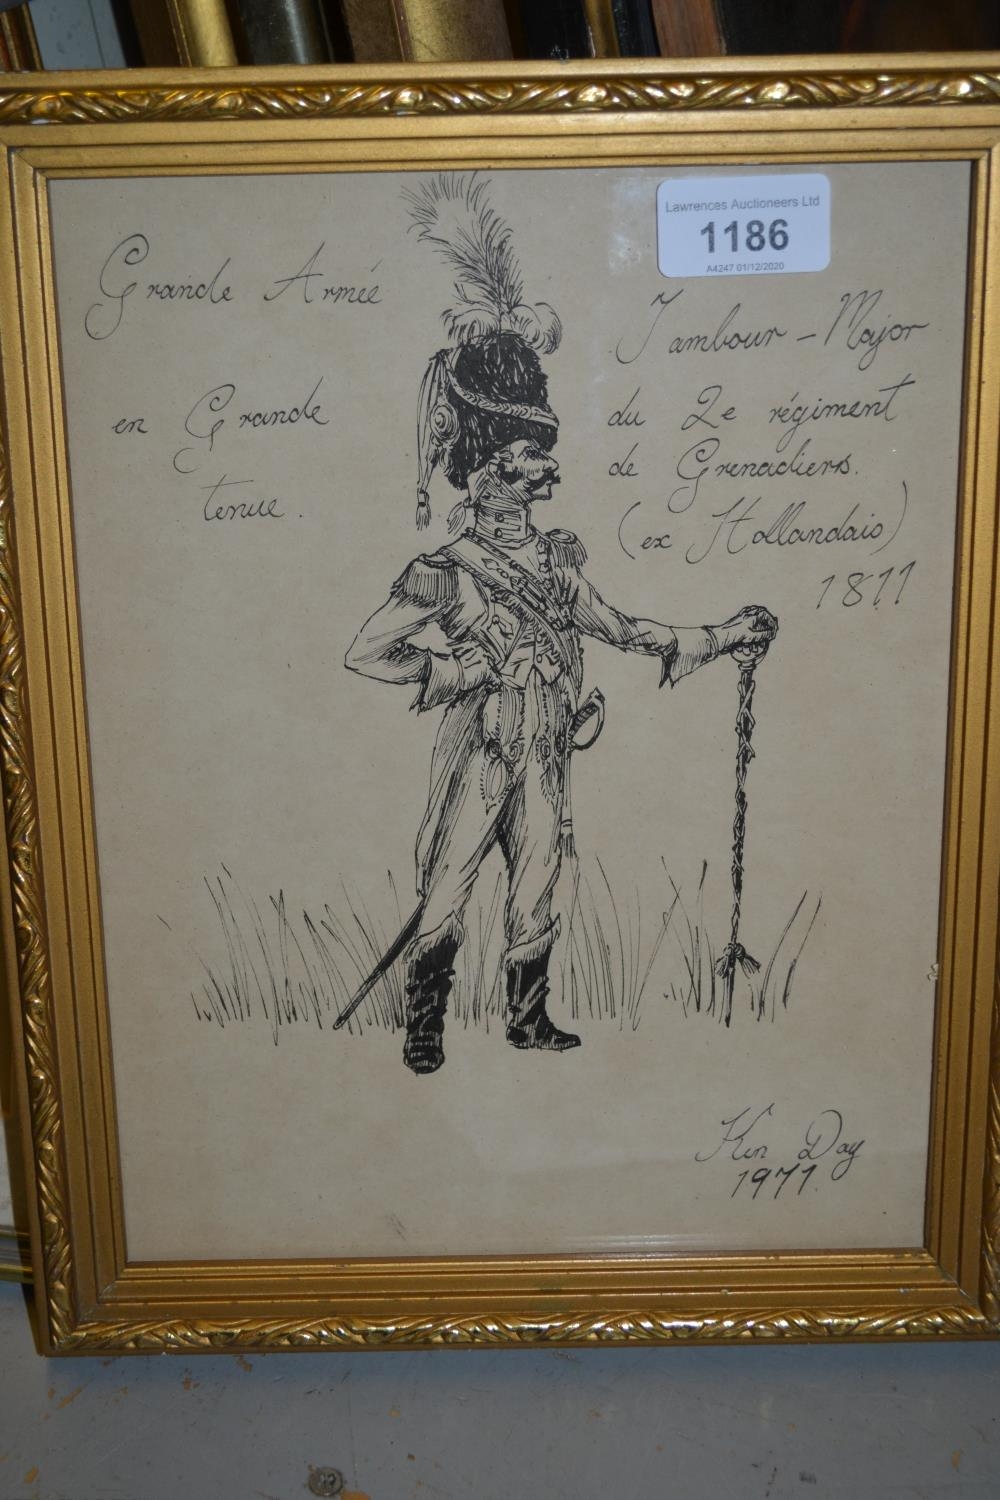 Lawrences Auctioneers Ltd
1186
A4247 01/12/2020
Grande Armée
en Grande
tenue.
Tambour - Major
du 2e régiment
de Grenadiers.
(ex Hollandais)
1811
Ken Day
1971.